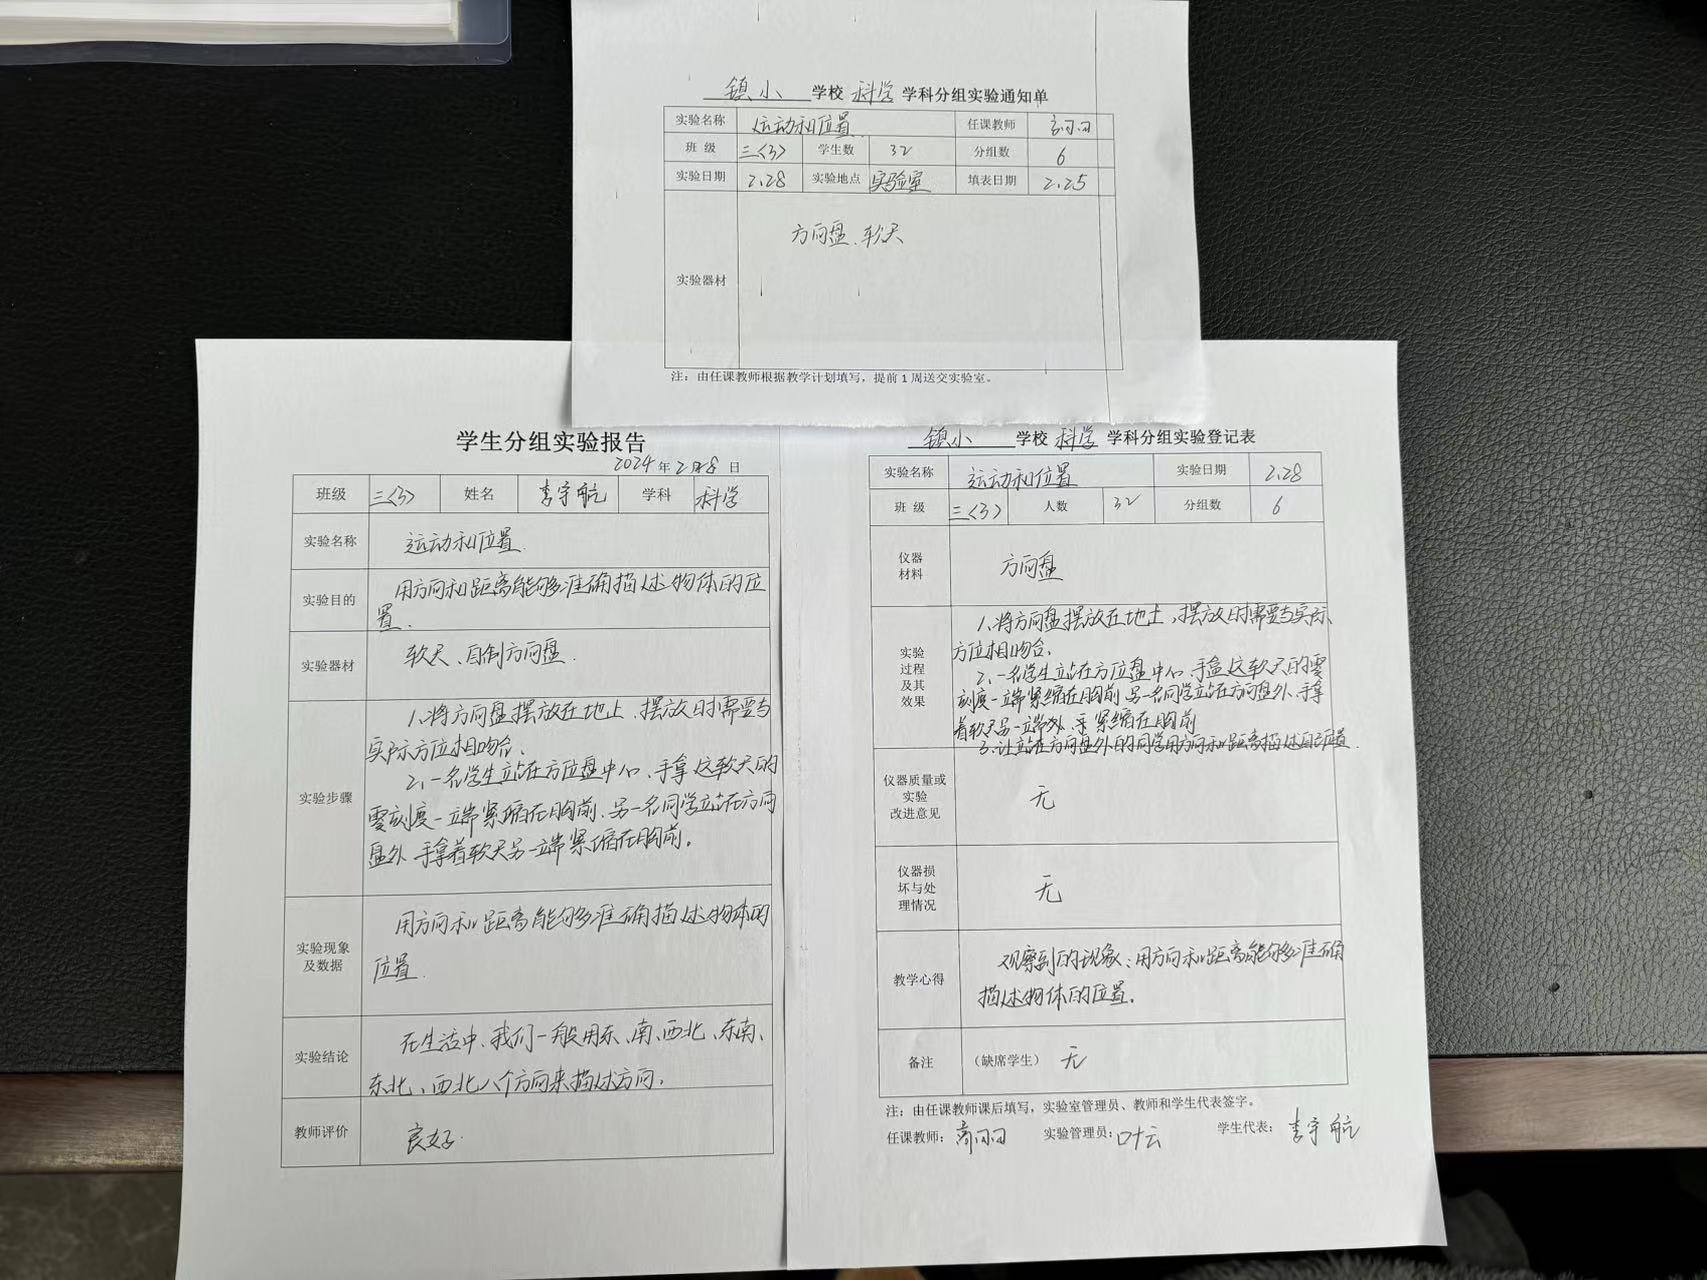 镇小 学校 科学 学科分组实验通知单
实验名称 运动和位置 任课教师
班 级 三(3) 学生数 32 分组数 6
实验日期 2.28 实验地点 实验室 填表日期 2.25
实验器材 方向盘、软尺
注：由任课教师根据教学计划填写，提前1周送交实验室。
学生分组实验报告
2024年2月28日
班级 三(3) 姓名 李宇航 学科 科学
实验名称 运动和位置.
实验目的 用方向和距离能够准确描述物体的位
置.
实验器材 软尺、自制方向盘.
实验步骤
1.将方向盘摆放在地上、摆放时需要与
实际方位相吻合.
2.一名学生站在方位盘中心、手拿这软尺的
零刻度一端紧缩在胸前、另一名同学站在方向
盘外、手拿着软尺另一端紧缩在胸前。
实验现象
及数据
用方向和距离能够准确描述物体的
位置.
实验结论
在生活中、我们一般用东、南、西北、东南、
东北、西北八个方向来描述方向。
教师评价 良好.
镇小 学校 科学 学科分组实验登记表
实验名称 运动和位置 实验日期 2.28
班 级 三(3) 人数 32 分组数 6
仪器
材料
方向盘
实验
过程
及其
效果
1.将方向盘摆放在地上，摆放时需要与实际
方位相吻合.
2.一名学生站在方位盘中心、手拿这软尺的零
刻度一端紧缩在胸前、另一名同学站在方向盘外、手拿
着软尺另一端 紧缩在胸前
3.让站在方向盘外的同学用方向和距离描述自己位置.
仪器质量或
实验
改进意见
无
仪器损
坏与处
理情况
无
教学心得
观察到的现象：用方向和距离能够准确
描述物体的位置.
备注 （缺席学生） 无
注：由任课教师课后填写，实验室管理员、教师和学生代表签字。
任课教师： 实验管理员：叶云 学生代表：李宇航